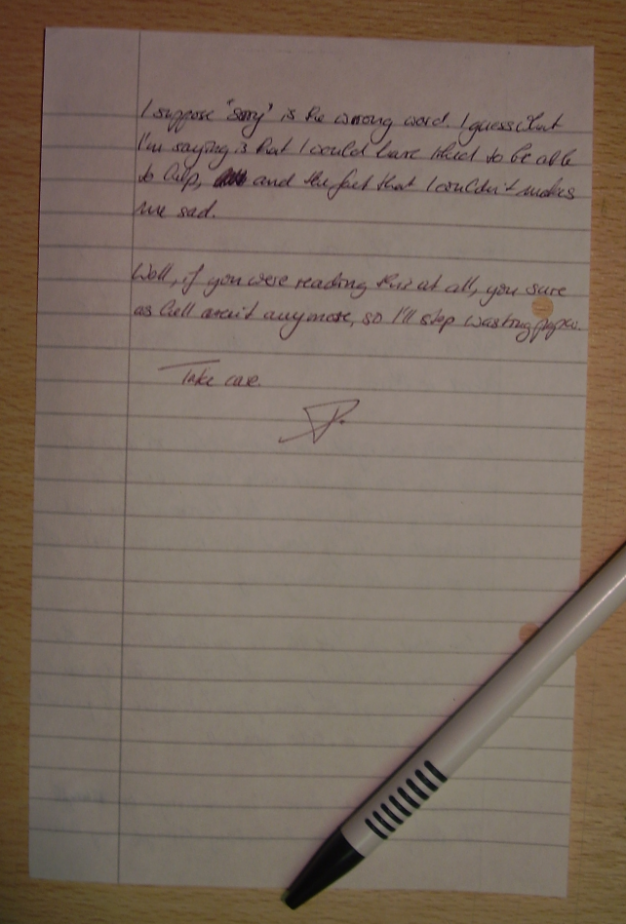 I suppose "sorry" is the wrong word. I guess what
I'm saying is that I would have liked to be able
to help, and the fact that I couldn't makes
me sad.
Well, if you were reading this at all, you sure
as hell aren't anymore, so I'll stop wasting paper.
Take care.